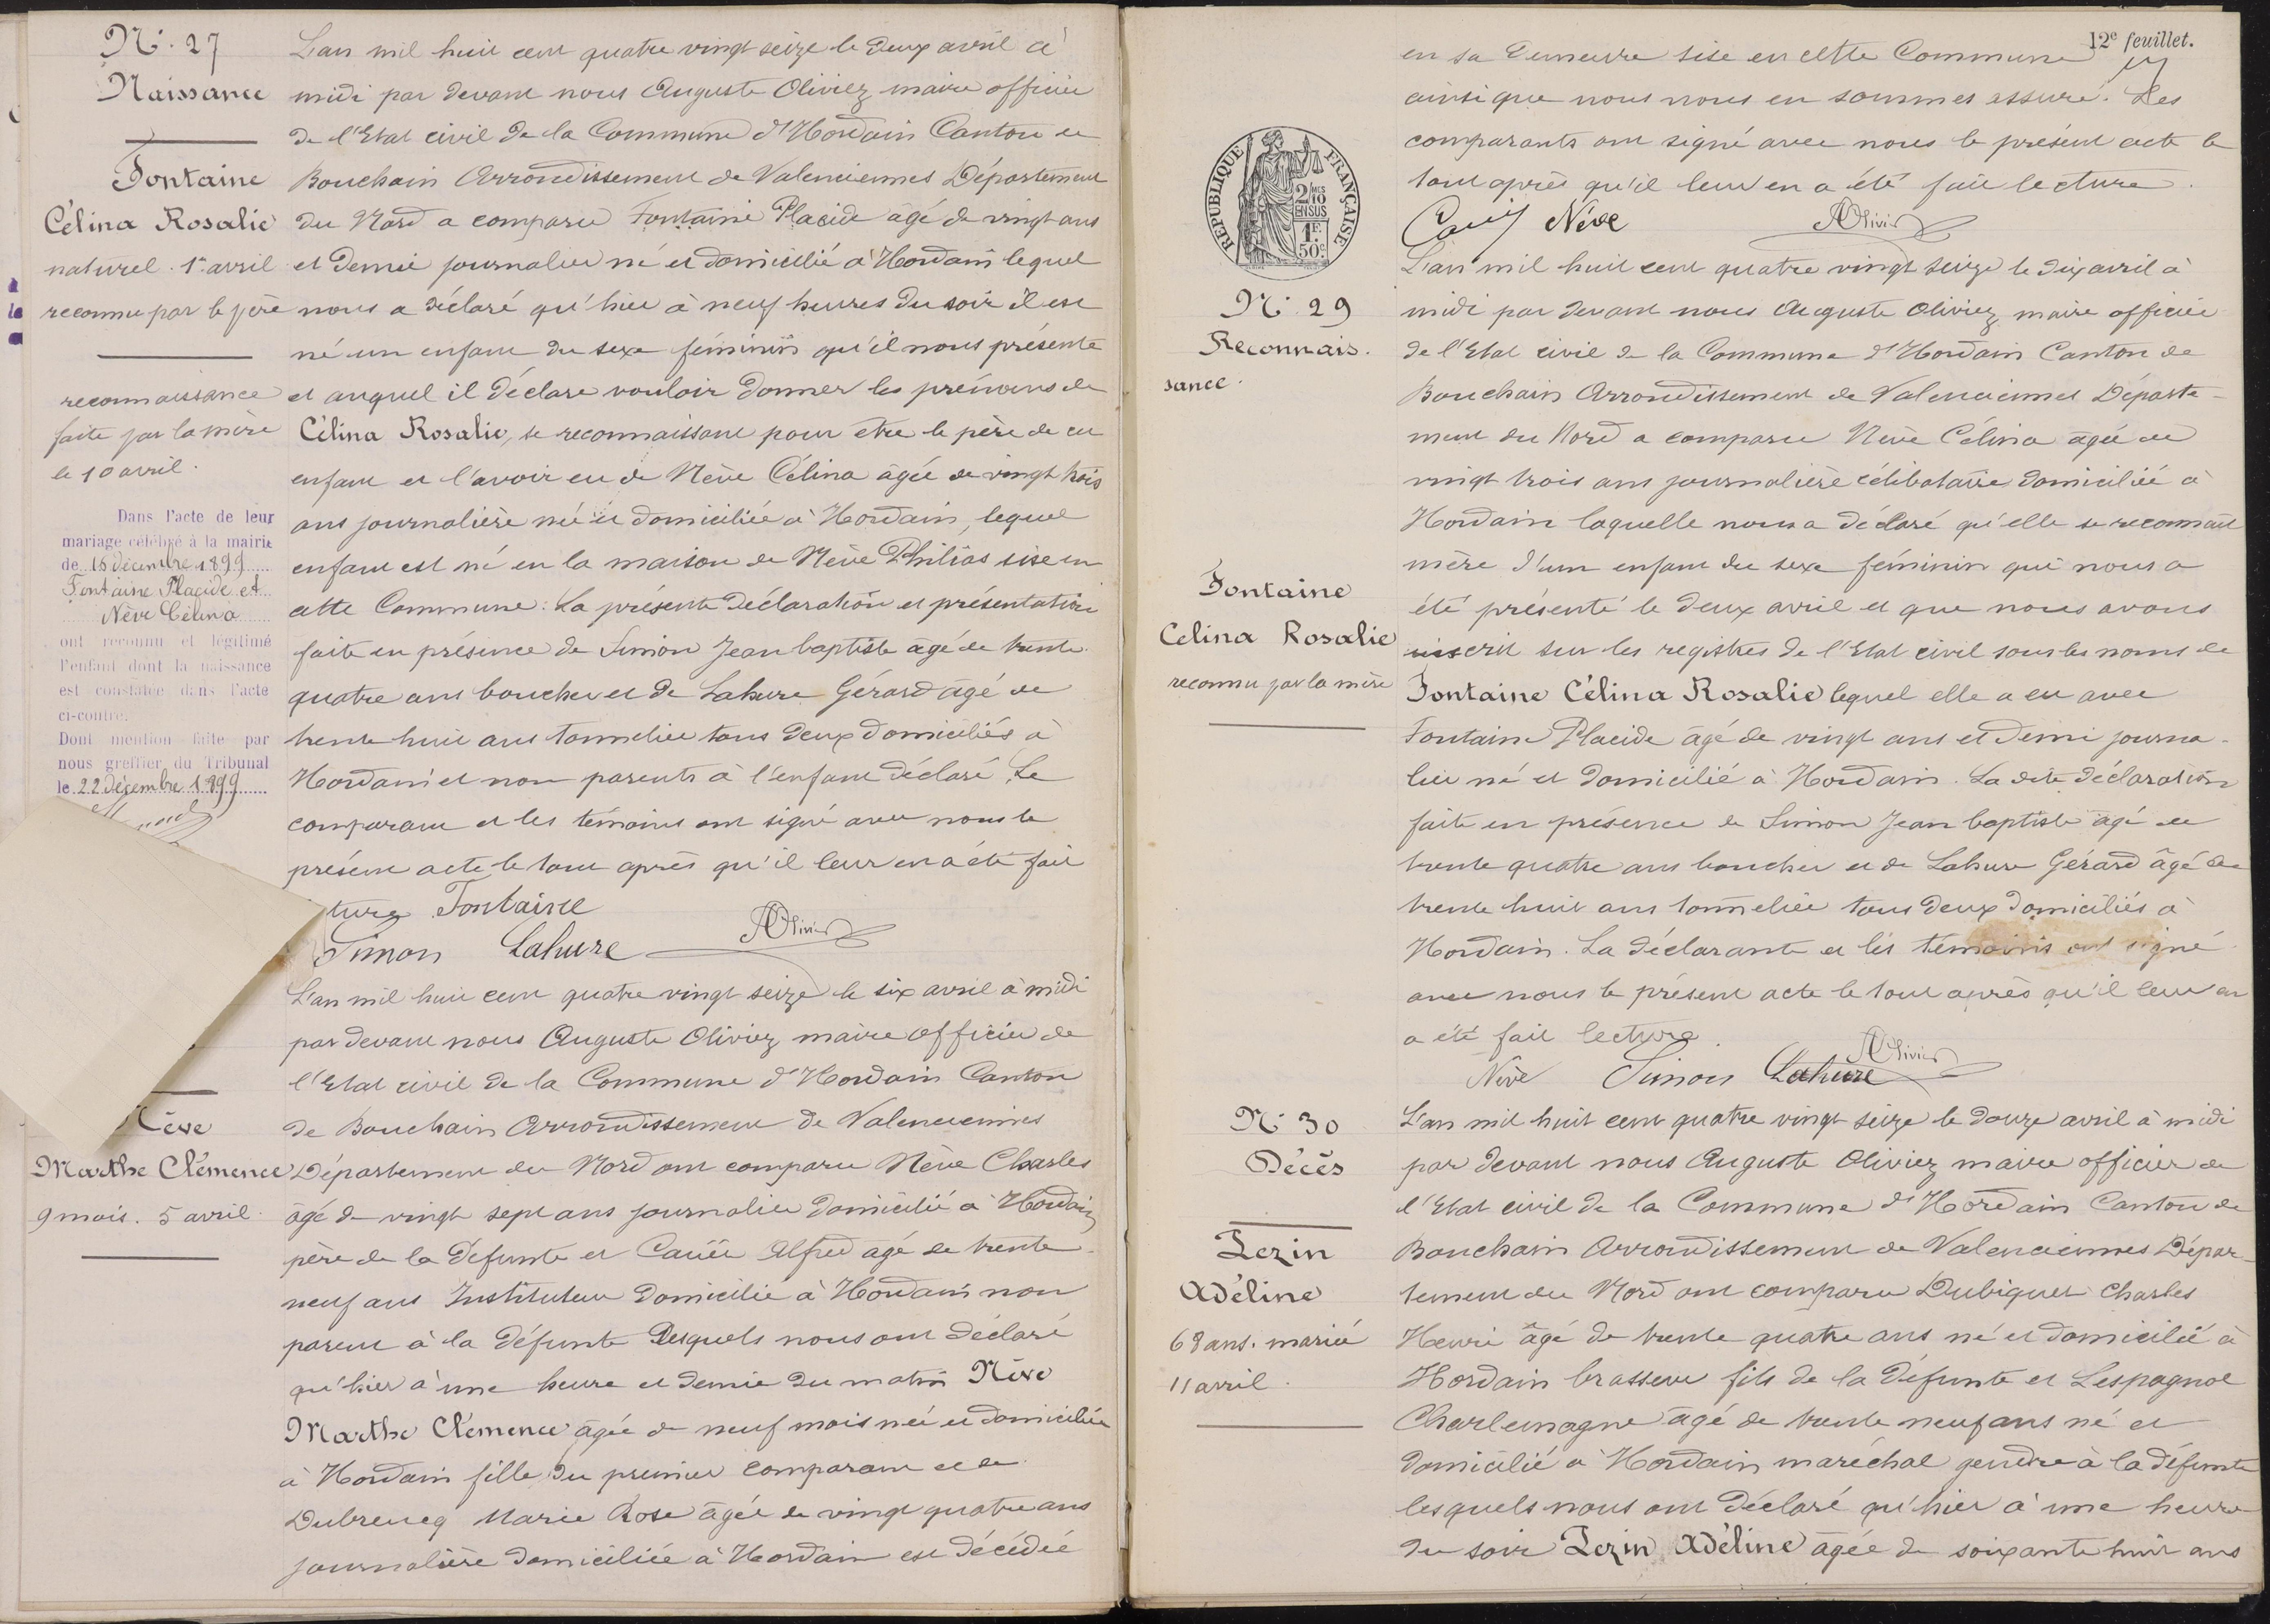 N° 27
Naissance
Fontaine
Célina Rosalie
naturel. 1er avril
reconnu par le père
reconnaissance
faite par la mère
le 10 avril.
Dans l'acte de leur
mariage célébré à la mairie
de 16 décembre 1899
Fontaine Placide et
Nève Célina
ont reconnu et légitimé
l'enfant dont la naissance
est constatée dans l'acte
ci-contre.
Dont mention faite par
nous greffier du Tribunal
le 22 décembre 1899
L'an mil huit cent quatre vingt seize le deux avril à
midi par devant nous Auguste Oliviez maire officier
de l'Etat civil de la Commune d'Hordain Canton de
Bouchain Arrondissement de Valenciennes Département
du Nord a comparu Fontaine Placide âgé de vingt ans
et demie journalier né et domicilié à Hordain lequel
nous a déclaré qu'hier à neuf heures du soir il est
né un enfant du sexe féminin qu'il nous présente
et auquel il déclare vouloir donner les prénoms de
Célina Rosalie, se reconnaissant pour être le père de cet
enfant et l'avoir eu de Nève Célina âgée de vingt trois
ans journalière née et domiciliée à Hordain, lequel
enfant est né en la maison de Nève Philias sise en
cette Commune. La présente déclaration et présentation
faite en présence de Simon Jean baptiste âgé de trente
quatre ans boucher et de Lahure Gérard âgé de
trente huit ans tonnelier tous deux domiciliés à
Hordain et non parents à l'enfant déclaré. Le
comparant et les témoins ont signé avec nous le
présent acte le tout après qu'il leur en a été fait
ture Fontaine
Simon Lahure AOlivier
Nève
Marthe Clémence
9 mois. 5 avril
L'an mil huit cent quatre vingt seize le six avril à midi
par devant nous Auguste Oliviez maire officier de
l'Etat civil de la Commune d'Hordain Canton
de Bouchain Arrondissement de Valenciennes
Département du Nord ont comparu Nève Charles
âgé de vingt sept ans journalier domicilié à Hordain
père de la défunte et Alfred âgé de trente
neuf ans Instituteur domicilié à Hordain non
parent à la défunte Lesquels nous ont déclaré
qu'hier à une heure et demie du matin Nève
Marthe Clémence âgée de neuf mois née et domiciliée
à Hordain fille du premier comparant et de
Dubreucq Marie Rose âgée de vingt quatre ans
journalière domiciliée à Hordain est décédée
12e feuillet.
en sa demeure sise en cette Commune
ainsi que nous nous en sommes assuré. Les
comparants ont signé avec nous le présent acte le
tout après qu'il leur en a été fait lecture.
Nève AOlivier
RÉPUBLIQUE FRANÇAISE
2/10 MES
EN SUS
1F.
50c.
N° 29
Reconnais.
sance.
Fontaine
Celina Rosalie
reconnu par la mère
L'an mil huit cent quatre vingt seize le dix avril à
midi par devant nous Auguste Oliviez maire officier
de l'Etat civil de la Commune d'Hordain Canton de
Bouchain Arrondissement de Valenciennes Départe-
ment du Nord a comparu Nève Célina âgée de
vingt trois ans journalière célibataire domiciliée à
Hordain laquelle nous a déclaré qu'elle se reconnait
mère d'un enfant du sexe féminin qui nous a
été présenté le deux avril et que nous avons
inscrit sur les registres de l'Etat civil sous les noms de
Fontaine Célina Rosalie lequel elle a eu avec
Fontaine Placide âgé de vingt ans et demi journa-
lier né et domicilié à Hordain. La dite déclaration
faite en présence de Simon Jean baptiste âgé de
trente quatre ans boucher et de Lahure Gérard âgé de
trente huit ans tonnelier tous deux domiciliés à
Hordain. La déclarante et les témoins ont signé
avec nous le présent acte le tout après qu'il leur en
a été fait lecture.
Nève Simon Lahure AOlivier
N° 30
Décès
Lezin
Adéline
68 ans. mariée
11 avril.
L'an mil huit cent quatre vingt seize le douze avril à midi
par devant nous Auguste Oliviez maire officier de
l'Etat civil de la Commune d'Hordain Canton de
Bouchain Arrondissement de Valenciennes Dépar-
tement du Nord ont comparu Dubiquet Charles
Henri âgé de trente quatre ans né et domicilié à
Hordain brasseur fils de la défunte et Lespagnol
Charlemagne âgé de trente neuf ans né et
domicilié à Hordain maréchal gendre à la défunte
lesquels nous ont déclaré qu'hier à une heure
du soir Lezin Adéline âgée de soixante huit ans